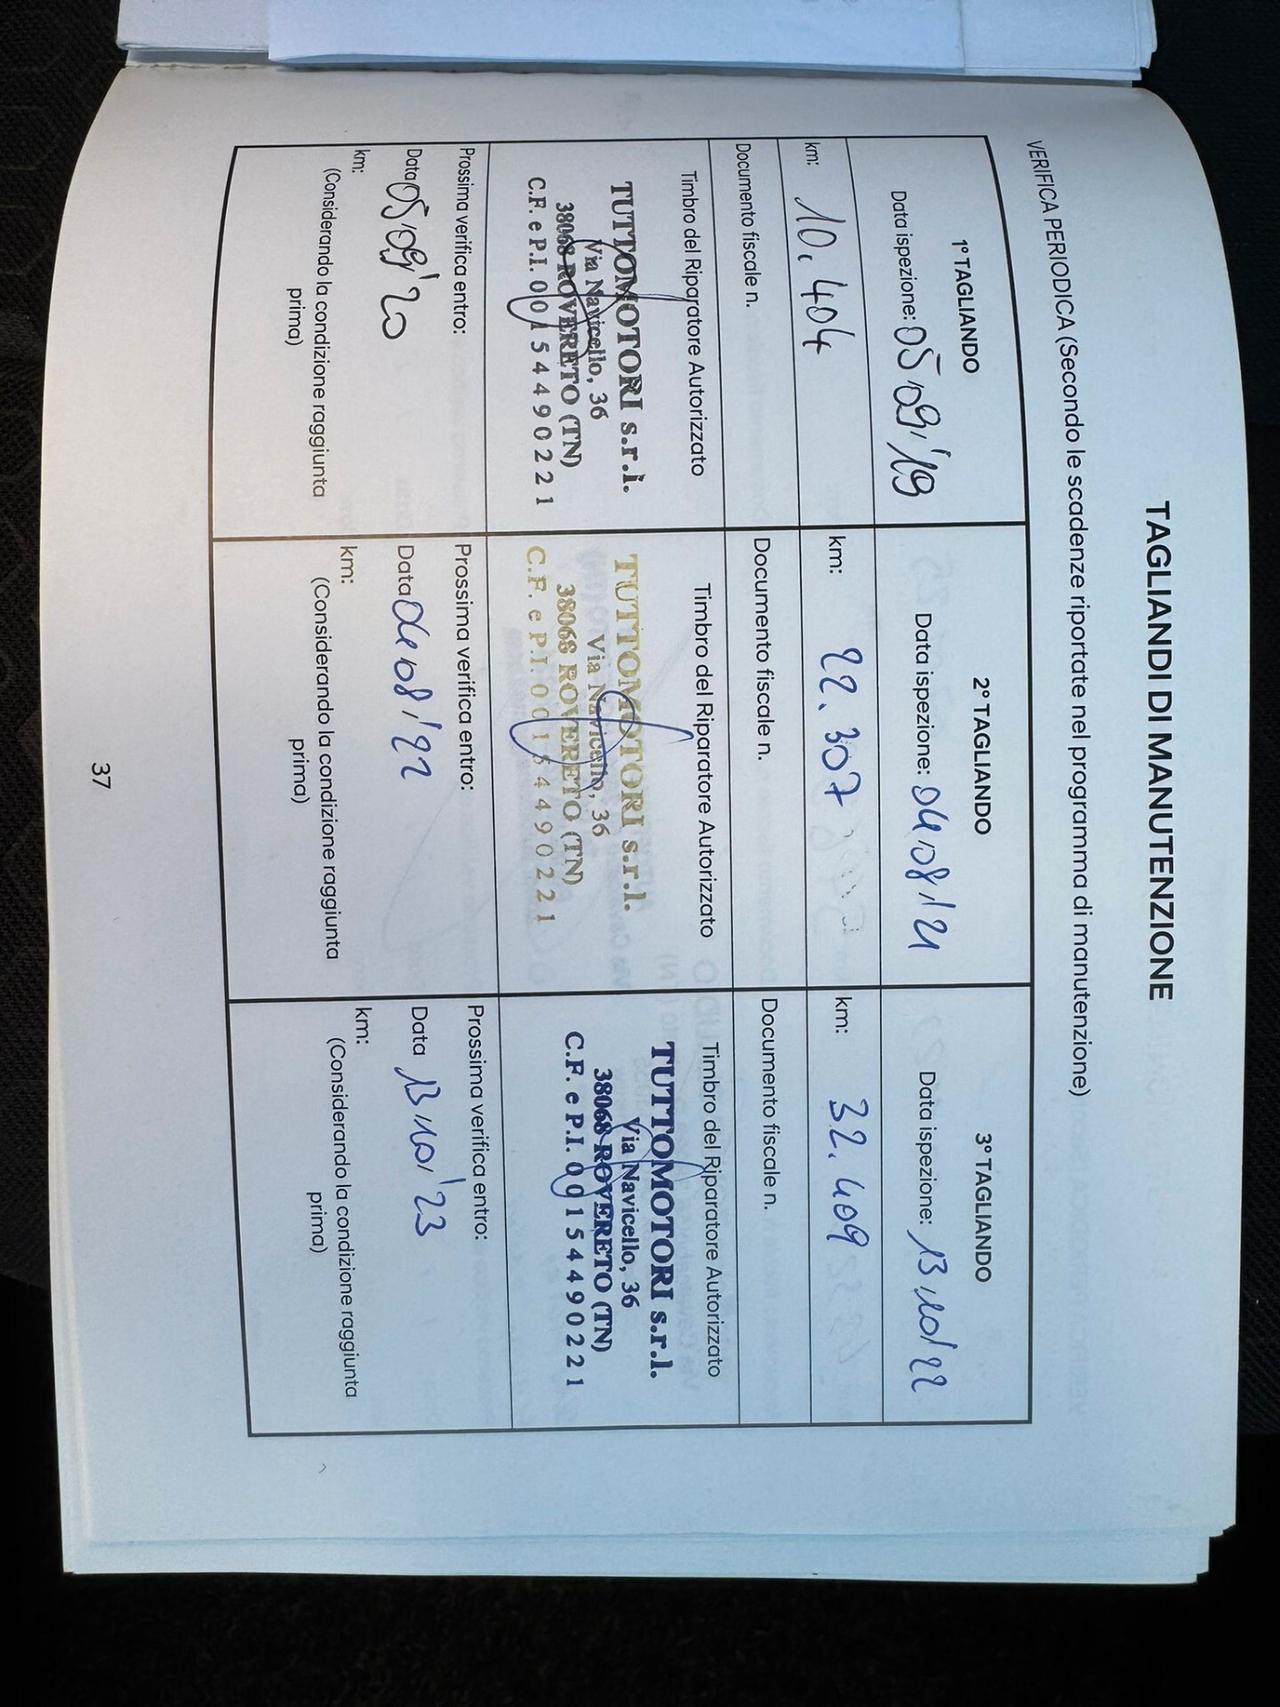 TAGLIANDI DI MANUTENZIONE
VERIFICA PERIODICA (Secondo le scadenze riportate nel programma di manutenzione)
1° TAGLIANDO
Data ispezione: 05.09.'19
km: 10.404
Documento fiscale n.
Timbro del Riparatore Autorizzato
TUTTOMOTORI s.r.l.
Via Navicello, 36
38068 ROVERETO (TN)
C.F. e P.I. 00154490221
Prossima verifica entro:
Data 05.09.'20
km:
(Considerando la condizione raggiunta
prima)
2° TAGLIANDO
Data ispezione: 04.08.'21
km: 22.307
Documento fiscale n.
Timbro del Riparatore Autorizzato
TUTTOMOTORI s.r.l.
Via Navicello, 36
38068 ROVERETO (TN)
C.F. e P.I. 00154490221
Prossima verifica entro:
Data 04.08.'22
km:
(Considerando la condizione raggiunta
prima)
3° TAGLIANDO
Data ispezione: 13.10.'22
km: 32.409
Documento fiscale n.
Timbro del Riparatore Autorizzato
TUTTOMOTORI s.r.l.
Via Navicello, 36
38068 ROVERETO (TN)
C.F. e P.I. 00154490221
Prossima verifica entro:
Data 13.10.'23
km:
(Considerando la condizione raggiunta
prima)
37